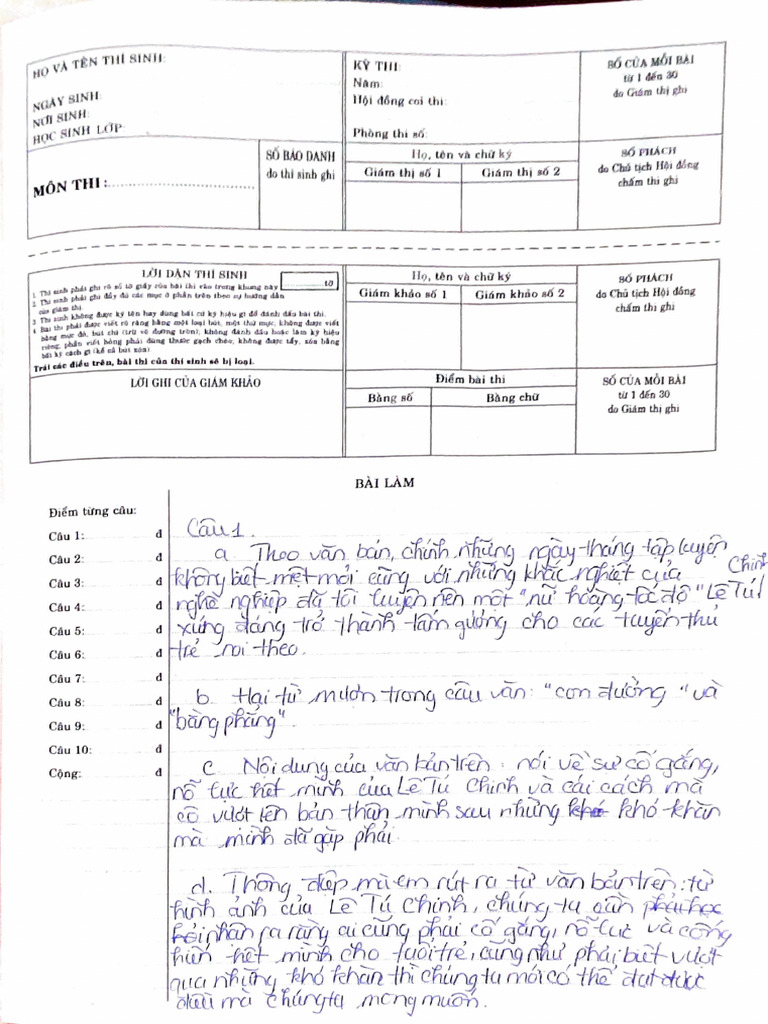 HỌ VÀ TÊN THÍ SINH:
NGÀY SINH:
NƠI SINH:
HỌC SINH LỚP:
KỲ THI:
Năm:
Hội đồng coi thi:
Phòng thi số:
SỐ CỦA MỖI BÀI
từ 1 đến 30
do Giám thị ghi
MÔN THI :
SỐ BÁO DANH
do thí sinh ghi
Họ, tên và chữ ký
Giám thị số 1
Giám thị số 2
SỐ PHÁCH
do Chủ tịch Hội đồng
chấm thi ghi
LỜI DẶN THÍ SINH
1. Thí sinh phải ghi rõ số tờ giấy của bài thi vào trong khung này
tờ
2. Thí sinh phải ghi đầy đủ các mục ở phần trên theo sự hướng dẫn
của giám thị.
3. Thí sinh không được ký tên hay dùng bất cứ ký hiệu gì để đánh dấu bài thi.
4. Bài thi phải được viết rõ ràng bằng một loại bút, một thứ mực, không được viết
bằng mực đỏ, bút chì (trừ vẽ đường tròn); không đánh dấu hoặc làm ký hiệu
riêng, phần viết hỏng phải dùng thước gạch chéo; không được tẩy, xóa bằng
bất kỳ cách gì (kể cả bút xóa)
Trái các điều trên, bài thi của thí sinh sẽ bị loại.
Họ, tên và chữ ký
Giám khảo số 1
Giám khảo số 2
SỐ PHÁCH
do Chủ tịch Hội đồng
chấm thi ghi
LỜI GHI CỦA GIÁM KHẢO
Điểm bài thi
Bằng số
Bằng chữ
SỐ CỦA MỖI BÀI
từ 1 đến 30
do Giám thị ghi
BÀI LÀM
Điểm từng câu:
Câu 1: đ
Câu 2: đ
Câu 3: đ
Câu 4: đ
Câu 5: đ
Câu 6: đ
Câu 7: đ
Câu 8: đ
Câu 9: đ
Câu 10: đ
Cộng: đ
Câu 1.
a. Theo văn bản, chính những ngày tháng tập luyện
không biết mệt mỏi cùng với những khắc nghiệt của
nghề nghiệp đã tôi luyện nên một "nữ hoàng tốc độ" Lê Tú Chinh
xứng đáng trở thành tấm gương cho các tuyển thủ
trẻ noi theo.
b. Hai từ mượn trong câu văn: "con đường" và
"bằng phẳng".
c. Nội dung của văn bản trên: nói về sự cố gắng,
nỗ lực hết mình của Lê Tú Chinh và cái cách mà
cô vượt lên bản thân mình sau những khó khó khăn
mà mình đã gặp phải.
d. Thông điệp mà em rút ra từ văn bản trên: từ
hình ảnh của Lê Tú Chinh, chúng ta cần phải học
hỏi nhận ra rằng ai cũng phải cố gắng, nỗ lực và cống
hiến hết mình cho tuổi trẻ, cũng như phải biết vượt
qua những khó khăn thì chúng ta mới có thể đạt được
điều mà chúng ta mong muốn.